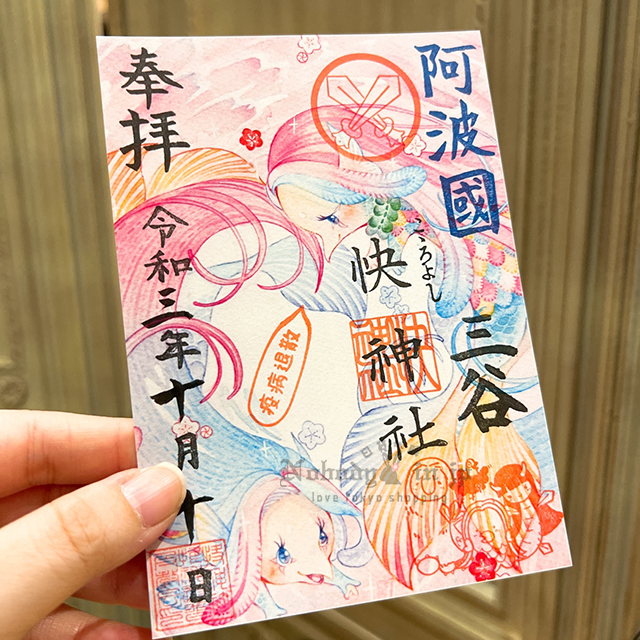 阿波國
三谷
こころよし
快神社
疫病退散
奉拝
令和三年十月十日
Nobody in.jp
love tokyo shopping